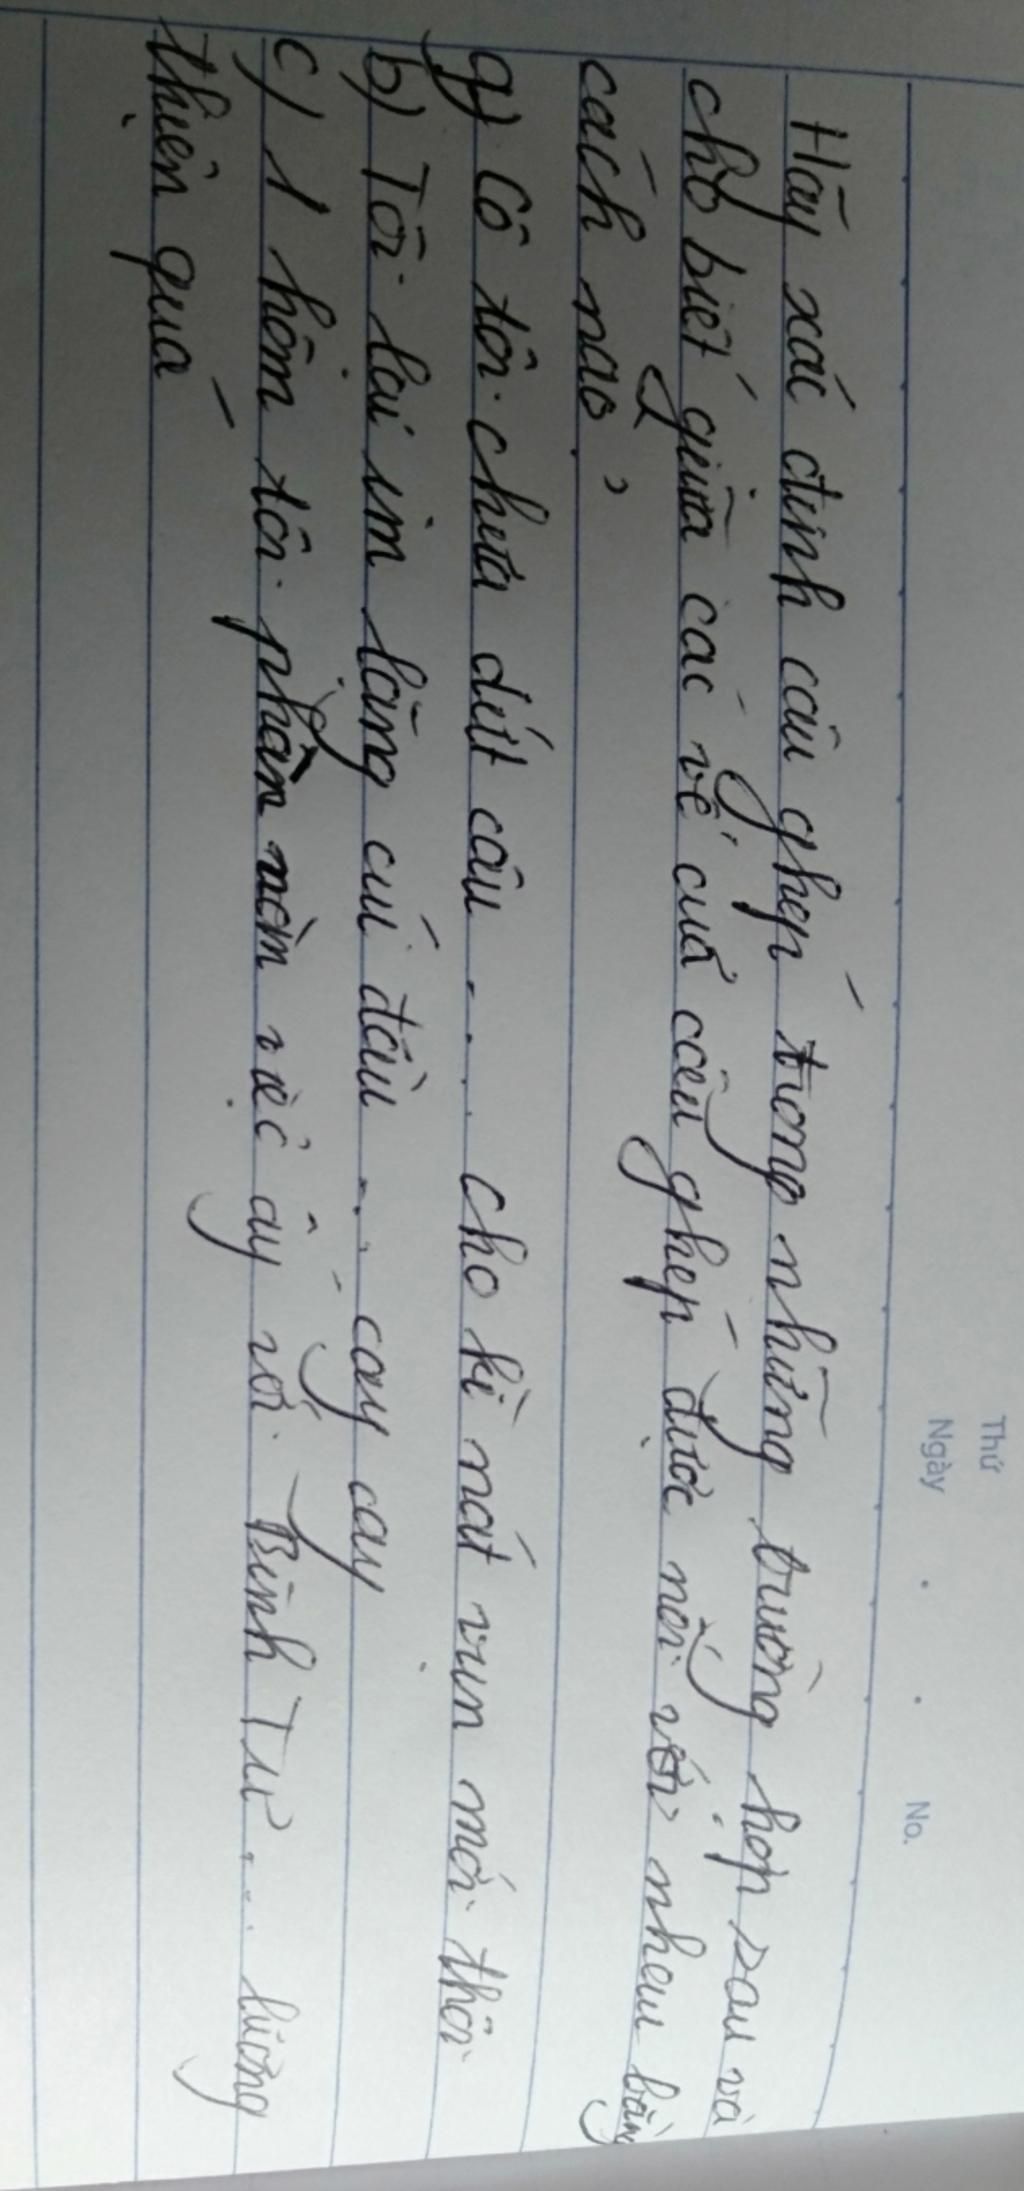 Thứ
Ngày
No.
Hãy xác định câu ghép trong những trường hợp sau và
cho biết giữa các vế của câu ghép được nối với nhau bằng
cách nào?
a) Cô tôi chưa dứt câu .... cho kì nát vụn mới thôi
b) Tôi lại im lặng cúi đầu ... cay cay
c) 1 hôm tôi phàn nàn việc ấy với Binh Tư .... lương
thiện quá